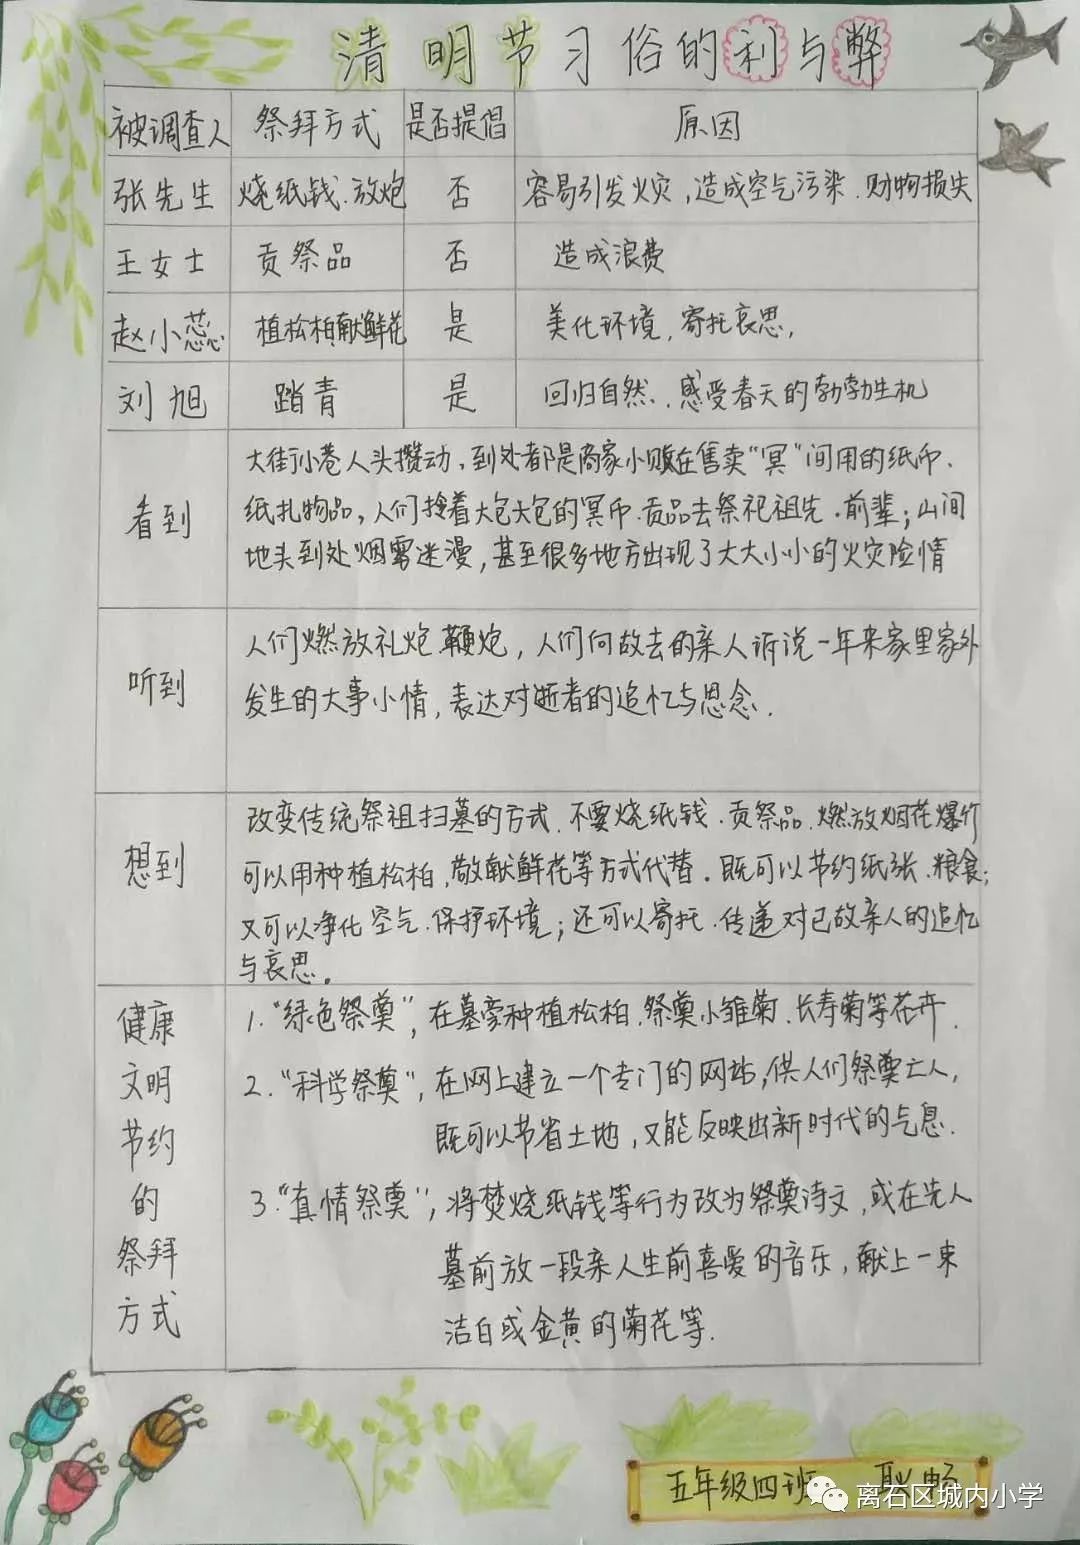 清明节习俗的利与弊
被调查人 祭拜方式 是否提倡 原因
张先生 烧纸钱、放炮 否 容易引发火灾,造成空气污染、财物损失
王女士 贡祭品 否 造成浪费
赵小蕊 植松柏、献鲜花 是 美化环境,寄托哀思,
刘旭 踏青 是 回归自然、感受春天的勃勃生机
看到
大街小巷人头攒动,到处都是商家小贩在售卖“冥”间用的纸币、
纸扎物品,人们拎着大包大包的冥币、贡品去祭祀祖先、前辈;山间
地头到处烟雾迷漫,甚至很多地方出现了大大小小的火灾险情
听到
人们燃放礼炮、鞭炮,人们向故去的亲人诉说一年来家里家外
发生的大事小情,表达对逝者的追忆与思念.
想到
改变传统祭祖扫墓的方式、不要烧纸钱、贡祭品、燃放烟花爆竹
可以用种植松柏,敬献鲜花等方式代替。既可以节约纸张、粮食;
又可以净化空气、保护环境;还可以寄托、传递对已故亲人的追忆
与哀思。
健康
文明
节约
的
祭拜
方式
1.“绿色祭奠”,在墓旁种植松柏、祭奠小雏菊、长寿菊等花卉.
2.“科学祭奠”,在网上建立一个专门的网站,供人们祭奠亡人,
既可以节省土地,又能反映出新时代的气息.
3.“真情祭奠”,将焚烧纸钱等行为改为祭奠诗文,或在先人
墓前放一段亲人生前喜爱的音乐,献上一束
洁白或金黄的菊花等.
五年级四班 耿畅
离石区城内小学